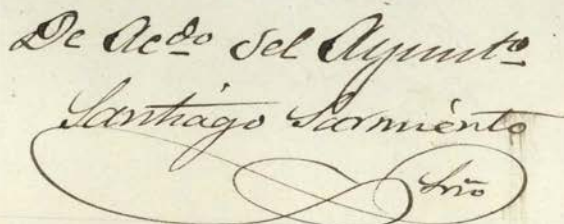 De Acdo del Ayunto
Santiago Sarmiento
Srio